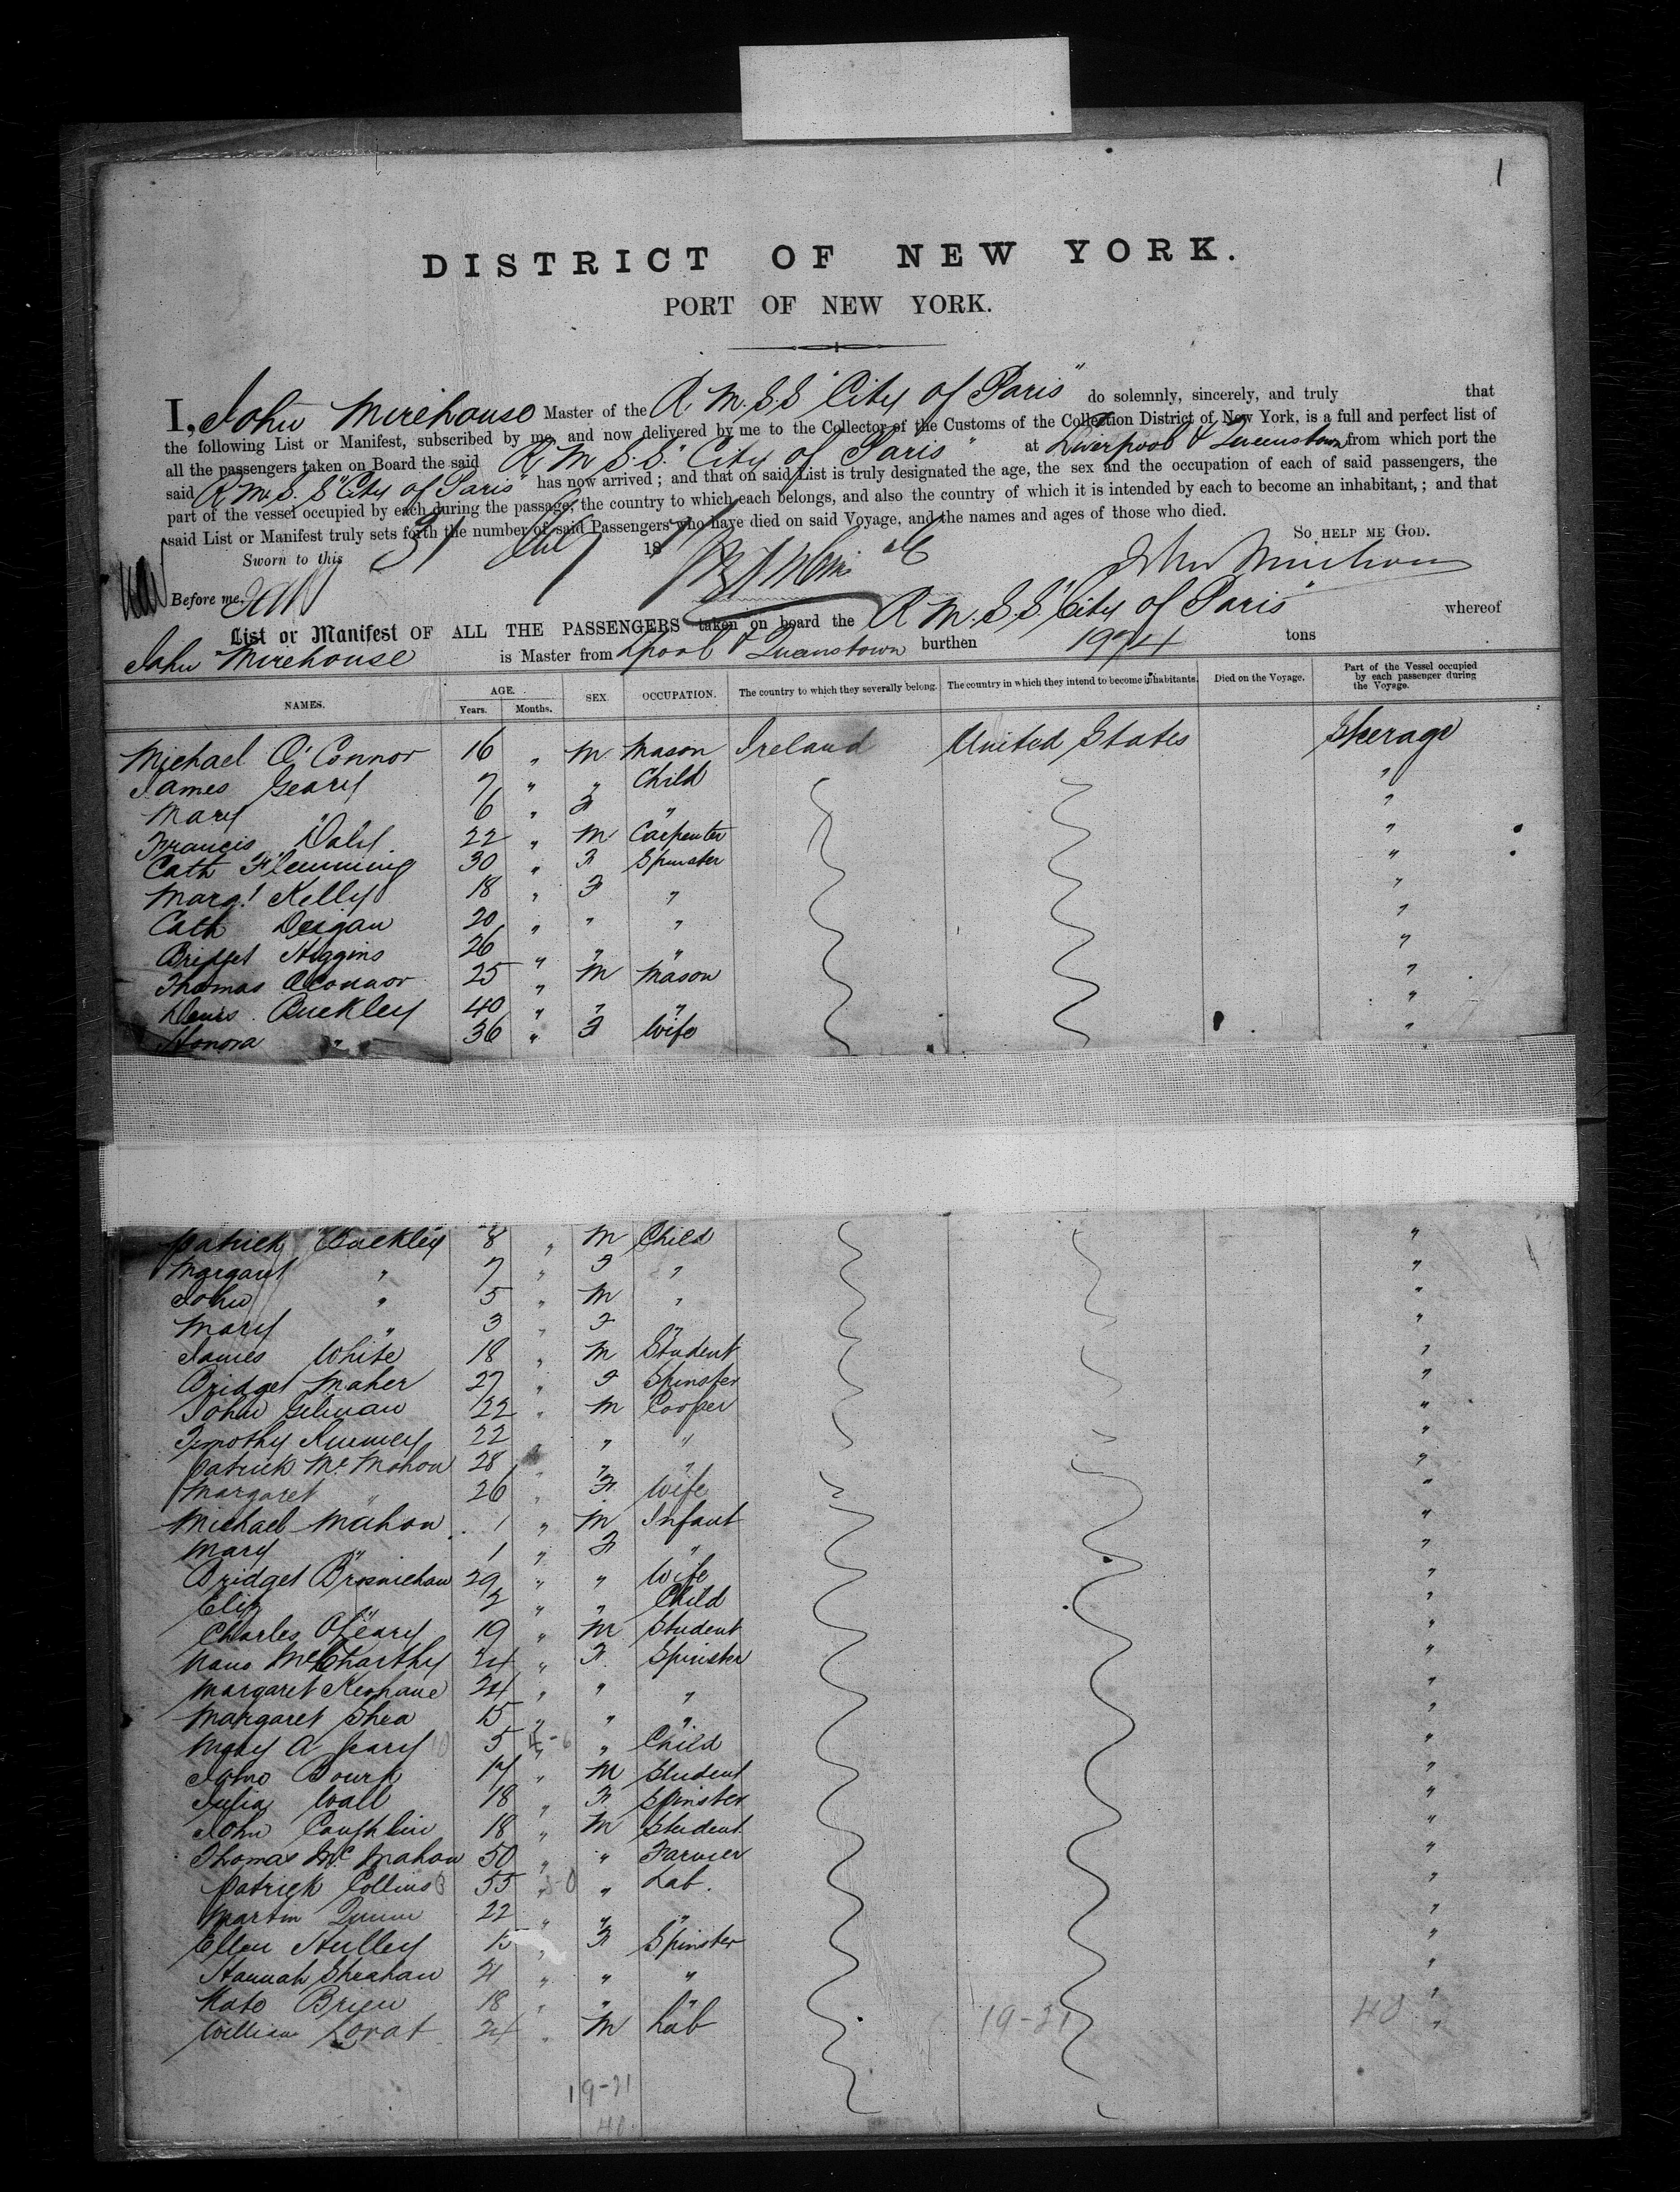 1
DISTRICT OF NEW YORK.
PORT OF NEW YORK.
I, John Mirehouse Master of the R. M. S.S "City of Paris" do solemnly, sincerely, and truly that
the following List or Manifest, subscribed by me, and now delivered by me to the Collector of the Customs of the Collection District of New York, is a full and perfect list of
all the passengers taken on Board the said R M S.S. "City of Paris" at Liverpool & Queenstown from which port the
said R. M. S. S "City of Paris" has now arrived ; and that on said List is truly designated the age, the sex and the occupation of each of said passengers, the
part of the vessel occupied by each during the passage, the country to which each belongs, and also the country of which it is intended by each to become an inhabitant, ; and that
said List or Manifest truly sets forth the number of said Passengers who have died on said Voyage, and the names and ages of those who died.
So HELP ME GOD.
Sworn to this 31 July 18
Before me,
List or Manifest OF ALL THE PASSENGERS taken on board the R. M. S.S. "City of Paris" whereof
John Mirehouse is Master from Lpool & Queenstown burthen tons
NAMES. AGE. Years. Months. SEX. OCCUPATION. The country to which they severally belong. The country in which they intend to become inhabitants. Died on the Voyage. Part of the Vessel occupied by each passenger during the Voyage.
Michael O'Connor 16 " M Mason Ireland United States Steerage
James Geary 7 " " Child "
Mary " 6 " F " "
Francis Daly. 22 " M Carpenter "
Cath Flemming 30 " F Spinster "
Marg.t Kelly 18 " F " "
Cath Deigan 20 " " " "
Bridget Higgins 26 " " " "
Thomas OConnor 25 " M Mason "
Denis Buckley 40 " " " "
Honora " 36 " F Wife "
Patrick Buckley 8 " M Child "
Margaret " 7 " F " "
John " 5 " M " "
Mary " 3 " F " "
James White 18 " M Student "
Bridget Maher 27 " F Spinster "
John 22 " M Cooper "
Timothy 22 " " " "
Patrick McMahon 28 " " " "
Margaret " 26 " F Wife "
Michael Mahon 1 " M Infant "
Mary " 1 " F " "
Bridget Brosnichan 29 " " Wife "
Eliz " 2 " " Child "
Charles OLeary 19 " M Student "
McCharthy 24 " F. Spinster "
Margaret Keohane 24 " " " "
Margaret Shea 15 " " " "
Mary A Geary 5 " " Child "
John Bourk 17 " M Student "
Julia Wall 18 " F Spinster "
John Coughlin 18 " M Student "
Thomas McMahon 50 " " Farmer "
Patrick Collins 55 " " Lab. "
Martin Quinn 22 " " " "
Ellen Hulley 15 " F Spinster "
Hannah Sheahan 21 " " " "
Kate Brien 18 " " " "
William 24 " M Lab "
19-21 40
19-21
40